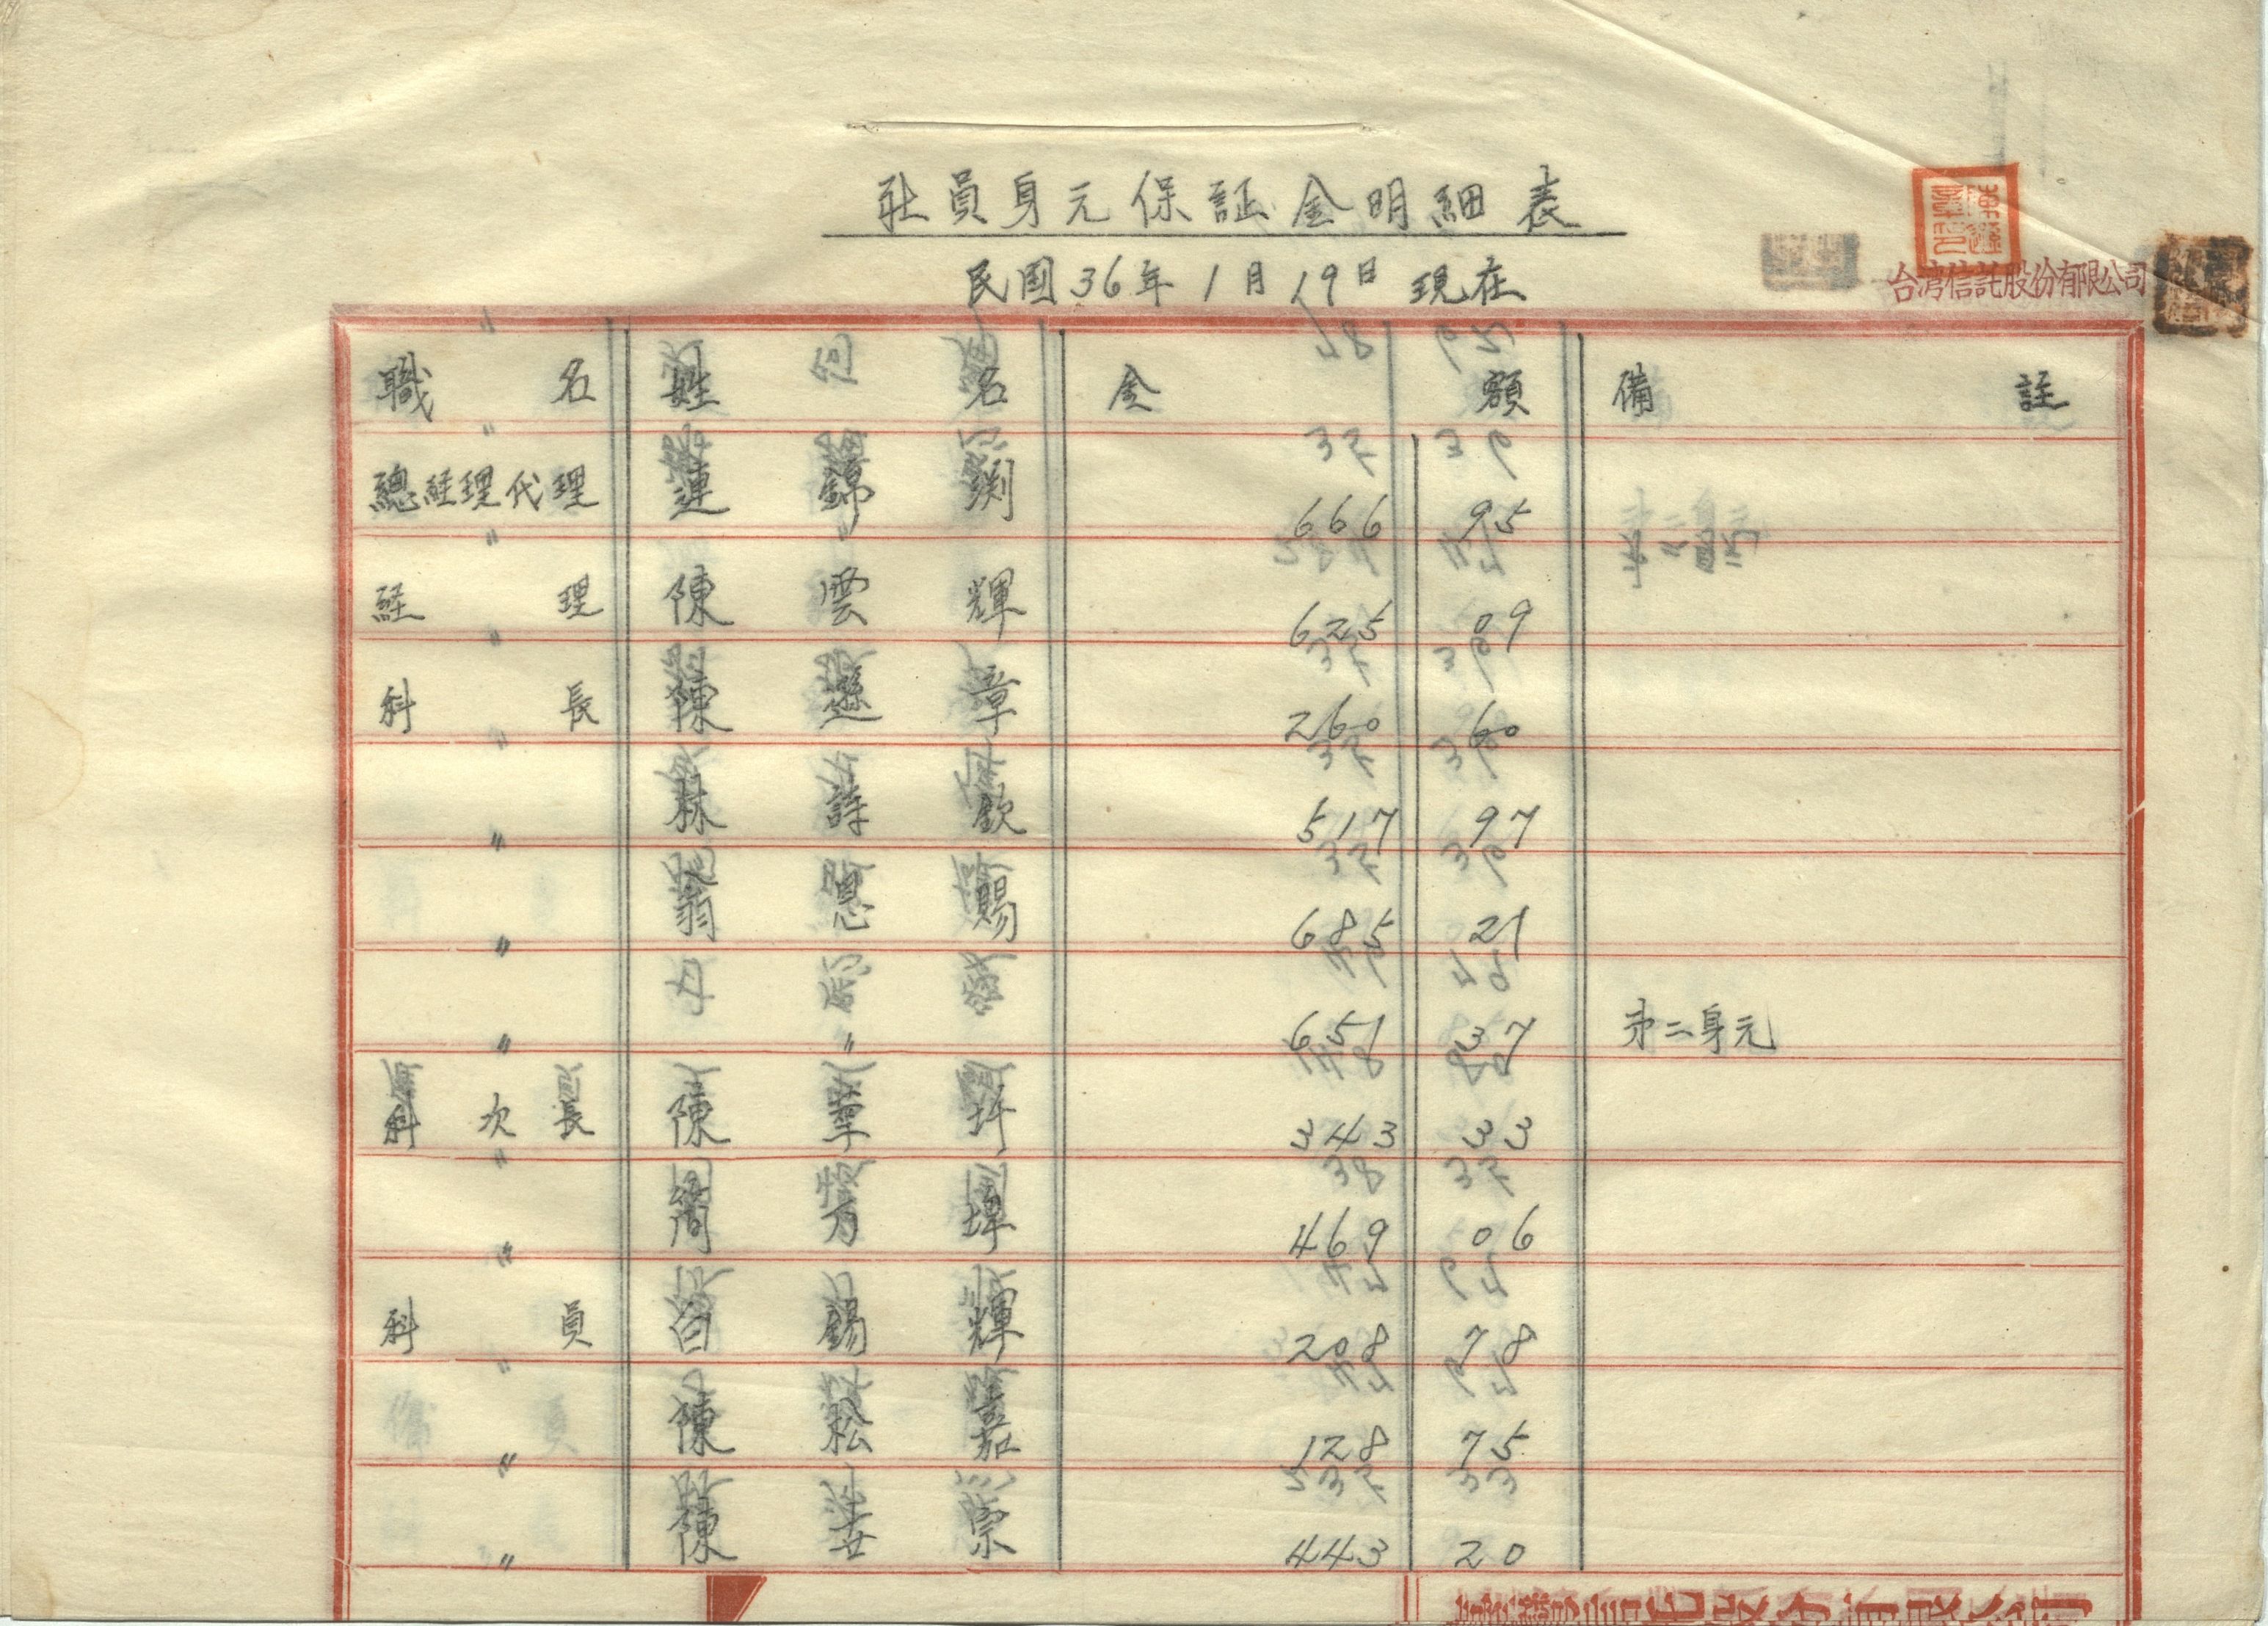 社員身元保証金明細表
民国36年1月19日 現在
台湾信託股份有限公司
職名 姓名 金額 備註
總経理代理 連錦渕 666 95
経理 陳雲輝 625 09
科長 陳遜章 260 60
〃 林詩欽 517 97
〃 翁恩賜 685 21
〃 〃 651 37 㐧二身元
科次長 陳 343 33
〃 469 06
科員 白錫輝 208 78
〃 陳松嘉 128 75
〃 陳 崇 443 20